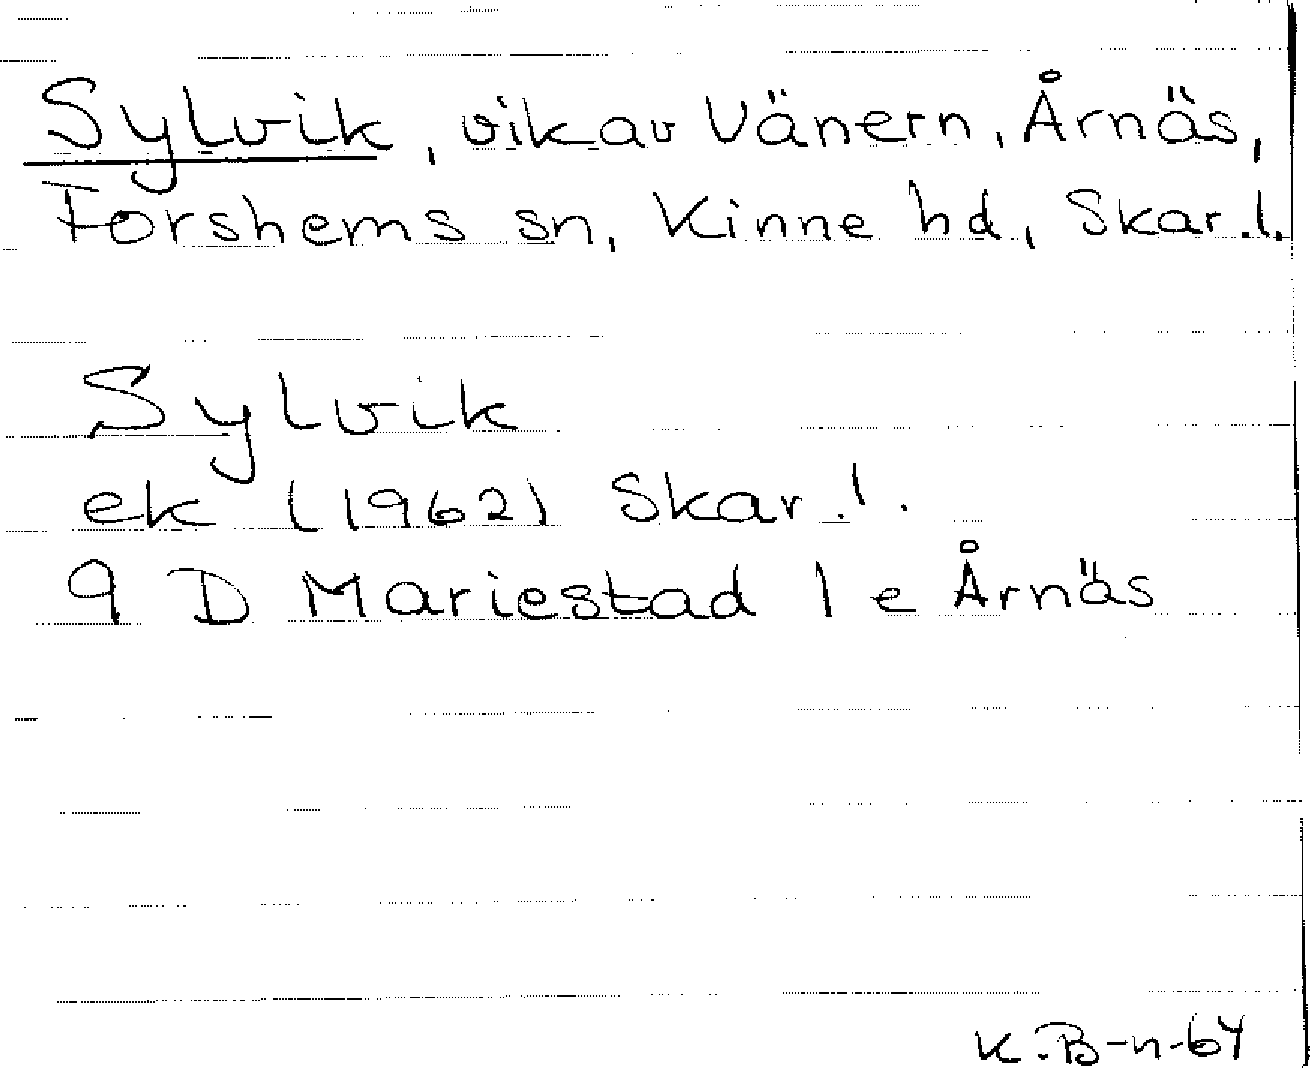 Sylvik, vik av Vänern, Årnäs,
Forshems sn, Kinne hd, Skar.l.
Sylvik
ek (1962) Skar.l.
9 D Mariestad 1 e Årnäs
K.B-n-64